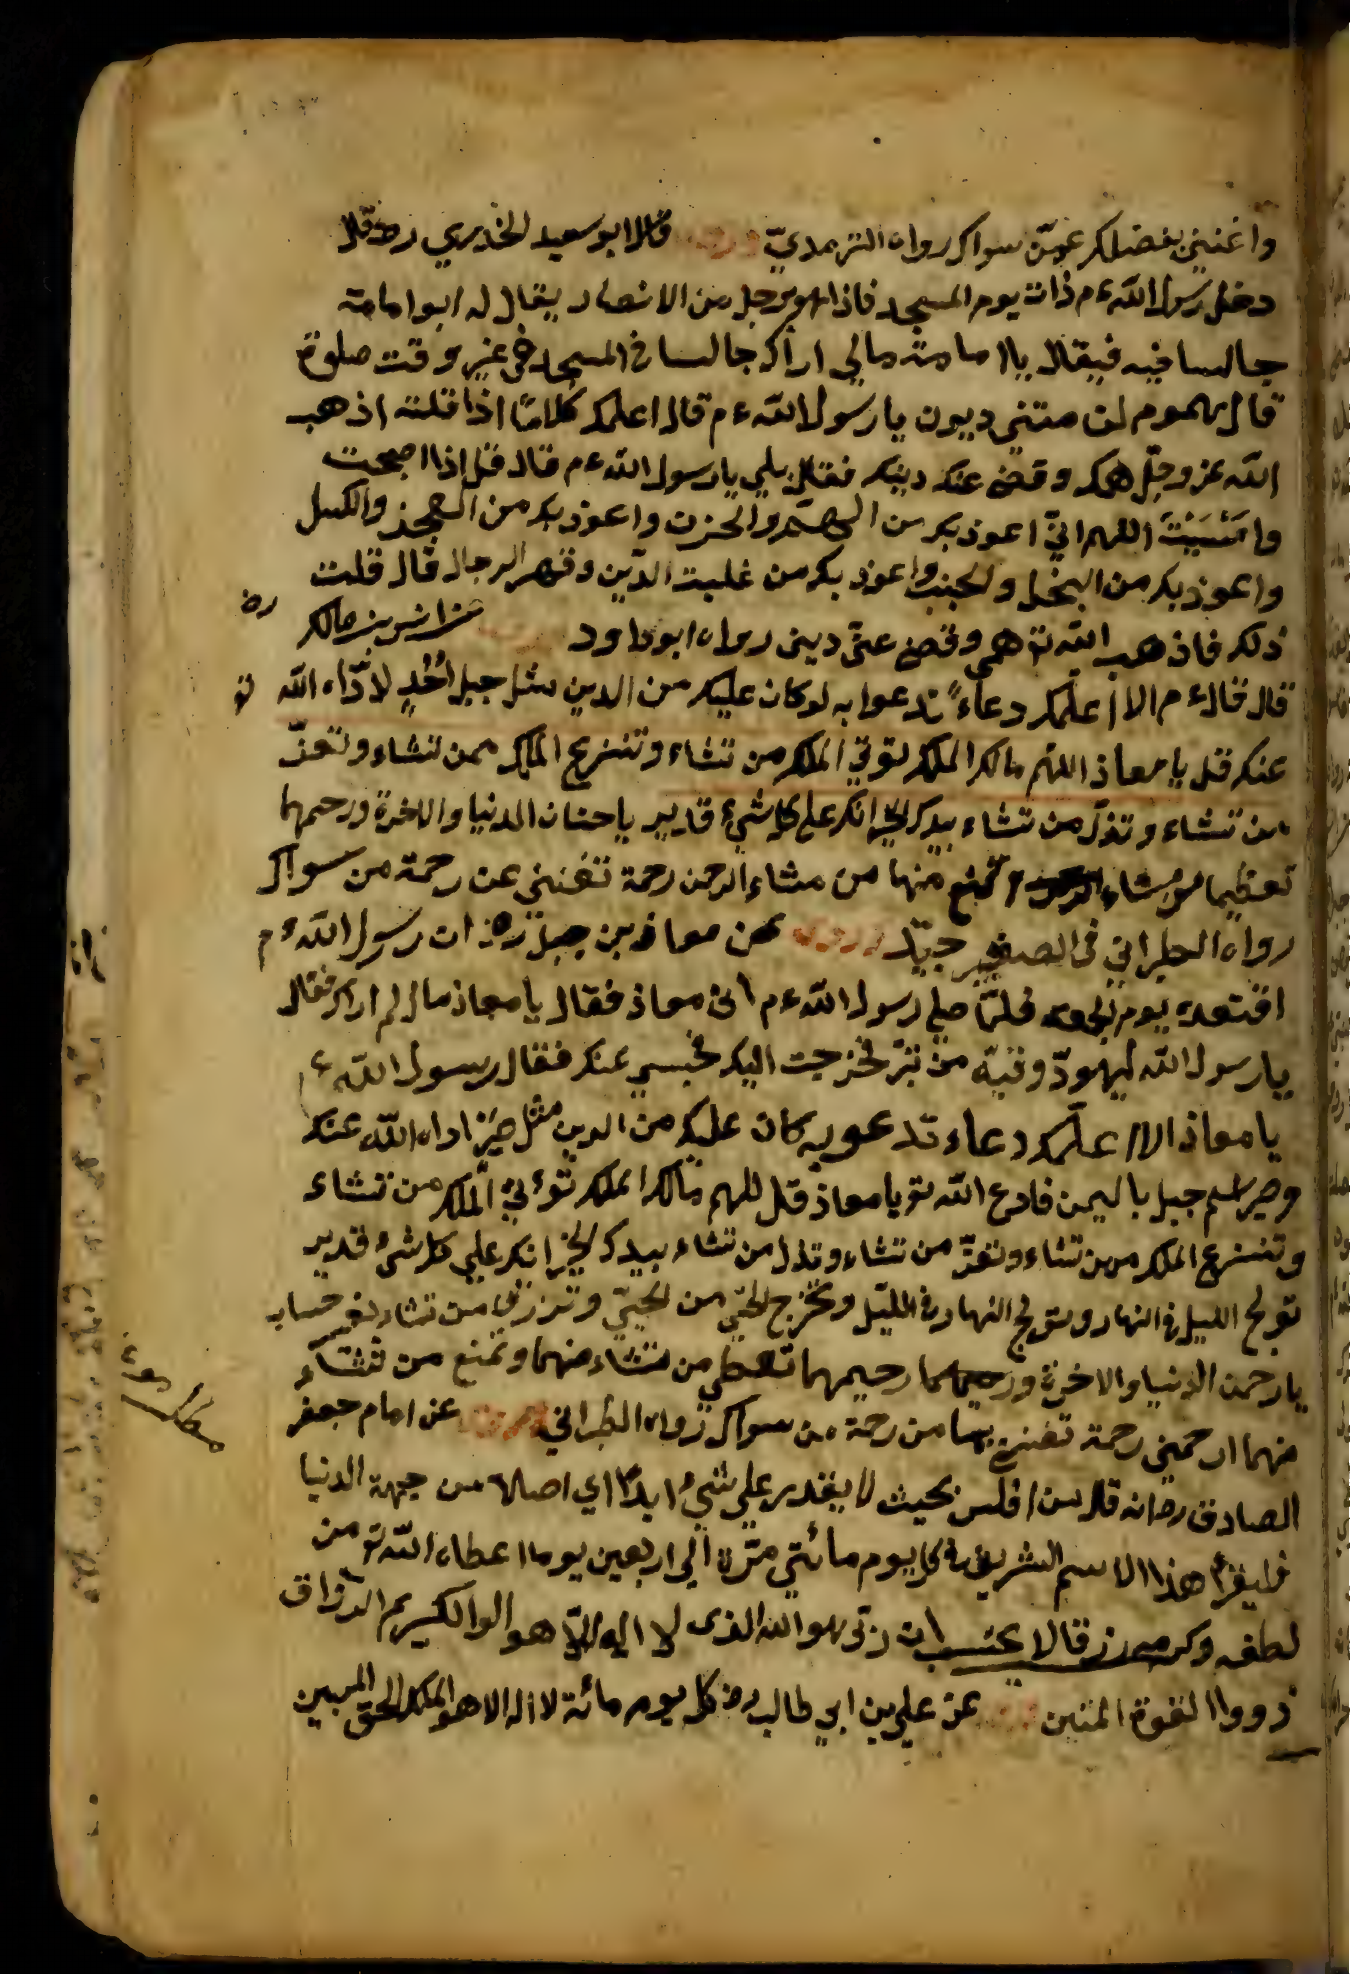 واغنني بفضلك عمّن سواك رواه الترمذيّ قال ابو سعيد الخدري رض قال
دخل رسول الله ءم ذات يوم المسجد فاذا هو برجل من الانصار يقال له ابو امامة
جالسا فيه فيقال يا امامة مالي اراك جالسا في المسجد في غير وقت صلوة
قال هموم لزمتني ديون يا رسول الله ءم قال اعلمك كلامًا اذا قلته اذهب
الله عز وجلّ همك وقضى عنك دينك فقال بلي يا رسول الله ءم قال قل اذا اصبحت
وامْسَيْتَ اللهم انيّ اعوذ بك من الهمّ والحزن واعوذ بك من العجز والكسل
واعوذ بك من البخل والجبن واعوذ بك من غلبت الدّين وقهر الرجال قال قلت
ذلك فاذهب الله تو همي وقضى عنّي ديني رواه ابو داود عن انس بن مالك رض
قال قال ءم الا اعلّمك دعاءً تدعوا به لو كان عليك من الدين مثل جبل اُحُدٍ لادّاه الله تو
عنك قل يا معاذ اللهم مالك الملك توتي الملك من تشاء وتنزع الملك ممن تشاء وتعزّ
من تشاء وتذلّ من تشاء بيدك الخير انك علي كل شيء قدير يا حنان الدنيا والاخرة ورحيمهما
تعطيهما من تشاء وتمنع منهما من تشاء ارحمن رحمة تغنني عن رحمة من سواك
رواه الطبراني في الصغير جيّد عن معاذ بن جبل رض ان رسول الله ءم
افتقده يوم الجمعة فلمّا صلي رسول الله ءم اتى معاذ فقال يا معاذ مالي لم اراك فقال
يا رسول الله ليهوديّ وقيّة من تبرّ فخرجت اليك فحبسي عنك فقال رسول الله ء
يا معاذ الا اعلّمك دعاء تدعو به كان عليك من الدين مثل صيرٍ اداه الله عنك
وصير اسم جبل باليمن فادع الله تو يا معاذ قل اللهم مالك الملك تؤتي الملك من تشاء
وتنزع الملك ممن تشاء وتعزّ من تشاء وتذل من تشاء بيدك الخير انك علي كل شئ قدير
تولج الليل في النهار وتولج النهار في الليّل وتخرج الحيّ من الميّت وترزق من تشاء بغير حساب
يا رحمن الدنيا والاخرة ورحيمهما تعطي من تشاء منهما وتمنع من تشاء
منهما ارحمني رحمة تغنني بها من رحمة من سواك رواه الطبراني عن امام جعفر
الصادق رض انه قال من افلس بحيث لا يقدر علي شيء ابدًا اي اصلا من جهة الدنيا
فليقرأ هذا الاسم الشريف في كل يوم مائتي مرّة الي اربعين يوما اعطاه الله تو من
لطفه وكرمه رزقا لا يحتسب ان ربّي هو الله الذي لا اله الاّ هو الكريم الرزّاق
ذو القوة المتين عن علي بن ابي طالب رض كل يوم مائة لا اله الا هو الملك الحق المبين